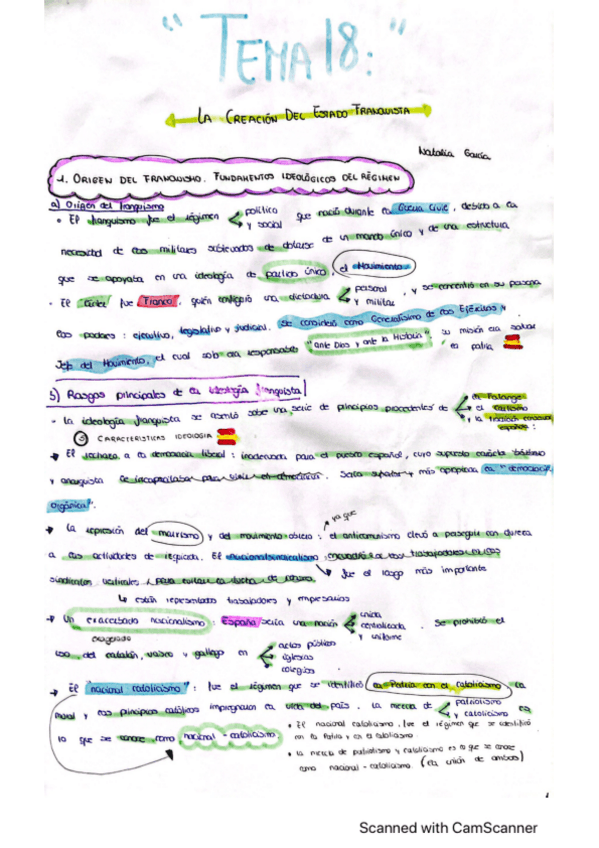 " TEMA 18: "
LA CREACIÓN DEL ESTADO FRANQUISTA
Natalia García
1. ORIGEN DEL FRANQUISMO. FUNDAMENTOS IDEOLÓGICOS DEL RÉGIMEN
a) Origen del franquismo
• El franquismo fue el régimen política y social que nació durante la Guerra Civil, debido a la
necesidad de los militares sublevados de dotarse de un mando único y de una estructura
que se apoyaba en una ideología de partido único, el Movimiento.
• El fue Franco, quién configuró una dictadura personal y militar, y se concentró en su persona
los poderes: ejecutivo, legislativo y judicial. Se consideró como Generalísimo de los Ejércitos y
Jefe del Movimiento, el cual solo era responsable "ante Dios y ante la Historia"; su misión era salvar la patria.
b) Rasgos principales de la ideología franquista
- La ideología franquista se asentó sobre una serie de principios procedentes de la Falange, el carlismo y la tradición española:
CARACTERISTICAS IDEOLOGIA
→ El rechazo a la democracia liberal: inadecuada para el pueblo español, cuyo supuesto carácter
y anarquista le incapacitaba para Sería superior y más apropiada la "democracia
orgánica".
→ La represión del marxismo y del movimiento obrero: ya que el anticomunismo llevó a perseguir con dureza
a las actividades de izquierda. El nacionalsindicalismo: a los trabajadores en los
sindicatos verticales, para evitar la lucha de clases. ↳ fue el rasgo más importante
↳ están representados trabajadores y empresarios
→ Un exacerbado nacionalismo: España sería una nación única, centralizada y uniforme. Se prohibió el
exagerado
uso del catalán, vasco y gallego en actos públicos, iglesias, colegios
→ El "nacional catolicismo": fue el régimen que se identificó la Patria con el catolicismo. La
moral y los principios católicos impregnaron la vida del país. La mezcla de patriotismo y catolicismo es
lo que se conoce como nacional-catolicismo
• El nacional catolicismo, fue el régimen que se identificó
con la Patria y con el catolicismo
• la mezcla de patriotismo y catolicismo es lo que se conoce
como nacional-catolicismo (la unión de ambos)
Scanned with CamScanner